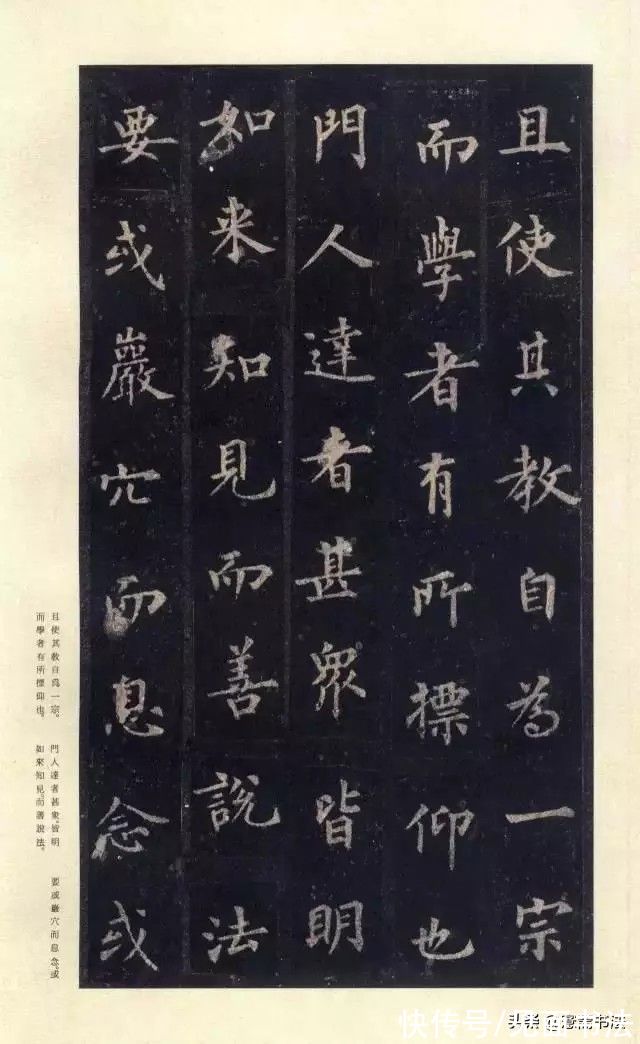 且使其教自為一宗
而學者有所標仰也
門人達者甚眾皆明
如来知見而善說法
要或巖穴而息念或
且使其教自爲一宗。
而學者有所標仰也。
門人達者甚衆。皆明
如來知見。而善說法。
要或巖穴而息念。或
快传号/
头条
书法